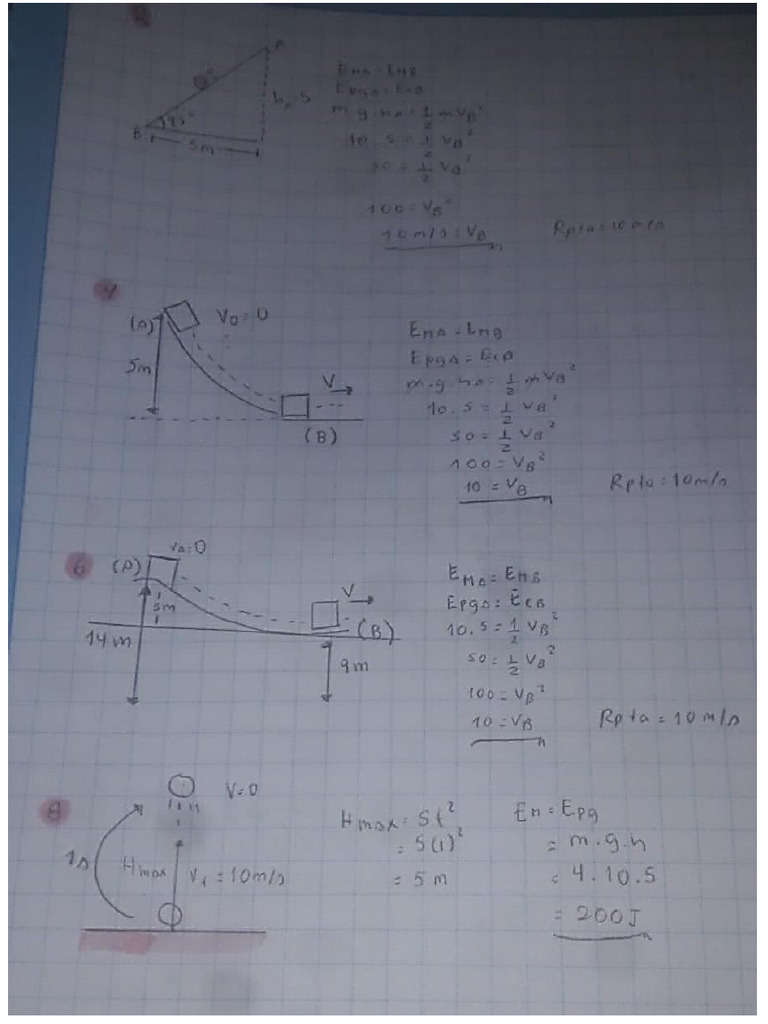 2
A
B
45°
5m
hA=5
EMA = EMB
EPgA = ECB
m.g.hA = 1/2 mVB²
10.5 = 1/2 VB²
50 = 1/2 VB²
100 = VB²
10 m/s = VB
Rpta = 10 m/s
4
(A)
V0 = 0
5m
V
(B)
EMA = EMB
EPgA = ECB
m.g.hA = 1/2 mVB²
10.5 = 1/2 VB²
50 = 1/2 VB²
100 = VB²
10 = VB
Rpta = 10m/s
6
(A)
VA=0
5m
14 m
V
(B)
9m
EMA = EMB
EPgA = ECB
10.5 = 1/2 VB²
50 = 1/2 VB²
100 = VB²
10 = VB
Rpta = 10 m/s
8
V=0
1s
Hmax
V1 = 10m/s
Hmax = 5t²
= 5(1)²
= 5 m
EM = EPg
= m.g.h
= 4.10.5
= 200J